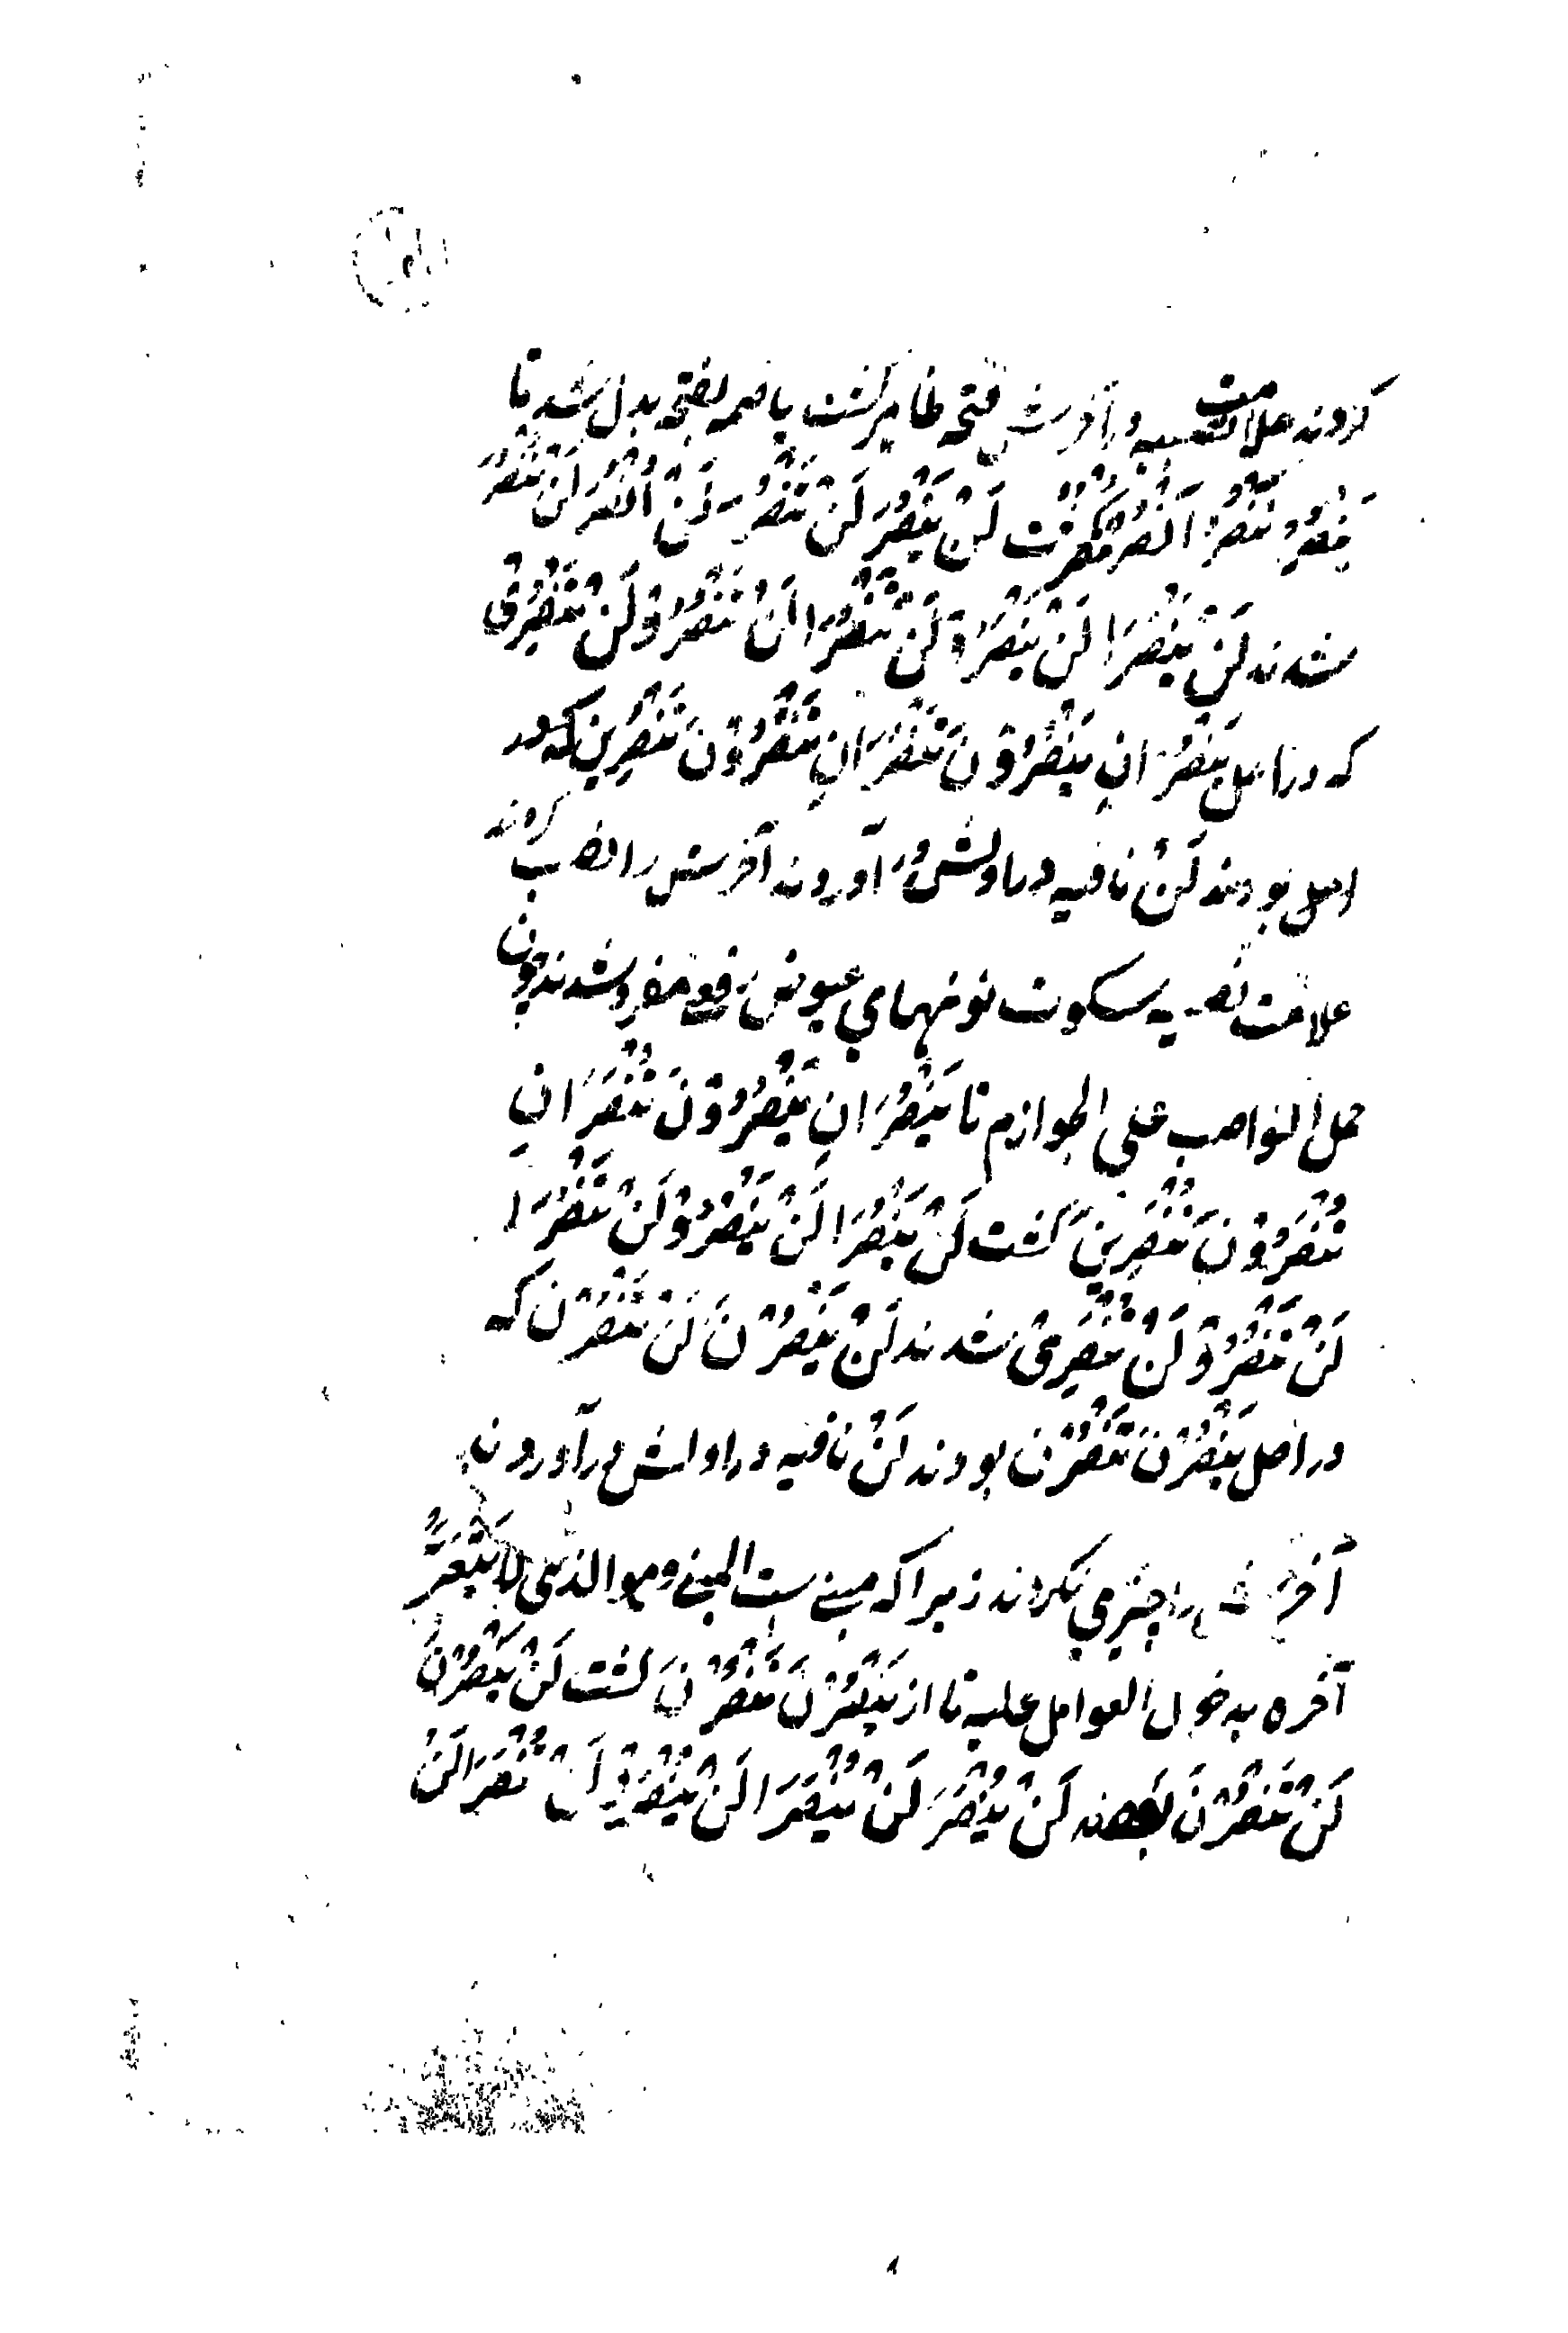 کردند علامت نصبیه در آخرش فتحه ظاهر گشت یا ضمه بفتحه بدل شد تا
یَنْصُرُ تَنْصُرُ اَنْصُرُ گشت لَنْ یَنْصُرَ لَنْ تَنْصُرَ لَنْ اَنْصُرَ لَنْ نَنْصُرَ
شدند لَنْ یَنْصُرَا لَنْ یَنْصُرُوْ لَنْ تَنْصُرَا لَنْ تَنْصُرُوْ لَنْ تَنْصُرِیْ
که در اصل یَنْصُرَانِ یَنْصُرُوْنَ تَنْصُرَانِ تَنْصُرُوْنَ تَنْصُرِیْنَ که در
اصل بودند لَنْ نافیه در اولش در آوردند آخرش را نصب کردند
علامت نصبیه سکوت نونهای عیوض رفع مفرد شدند چون
حمل النواصب علی الجوازم تا یَنْصُرَانِ یَنْصُرُوْنَ تَنْصُرَانِ
تَنْصُرُوْنَ تَنْصُرِیْنَ گشت لَنْ یَنْصُرَا لَنْ یَنْصُرُوْ لَنْ تَنْصُرَا
لَنْ تَنْصُرُوْ لَنْ تَنْصُرِیْ شدند لَنْ یَنْصُرْنَ لَنْ تَنْصُرْنَ که
در اصل یَنْصُرْنَ تَنْصُرْنَ بودند لَنْ نافیه در اولش در آوردند
آخرش را چیزی نکردند زیرا که مبنی ست المبنی و هو الذی لا یتغیر
آخره بدخول العوامل علیه تا از یَنْصُرْنَ تَنْصُرْنَ گشت لَنْ یَنْصُرْنَ
لَنْ تَنْصُرْنَ شدند لَنْ یُنْصَرَ لَنْ یُنْصَرَا لَنْ یُنْصَرُوْ لَنْ تُنْصَرَ لَنْ